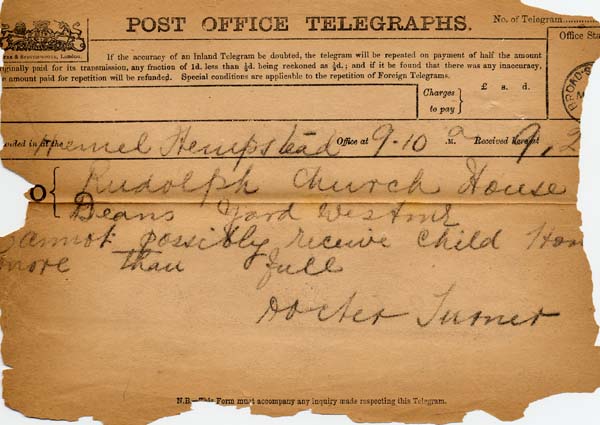 POST OFFICE TELEGRAPHS.
No. of Telegram
If the accuracy of an Inland Telegram be doubted, the telegram will be repeated on payment of half the amount
originally paid for its transmission, any fraction of 1d. less than ½d. being reckoned as ½d.; and if it be found that there was any inaccuracy,
the amount paid for repetition will be refunded. Special conditions are applicable to the repetition of Foreign Telegrams.
Office Sta
Charges to pay
£ s. d.
BROAD-S
Handed in at the Hemel Hempstead Office at 9-10 a .M. Received here at 9,2
O Rudolph Church House
Deans Yard Westmr
Cannot possibly receive child Hom
more than full
Docter Turner
N.B.—This Form must accompany any inquiry made respecting this Telegram.